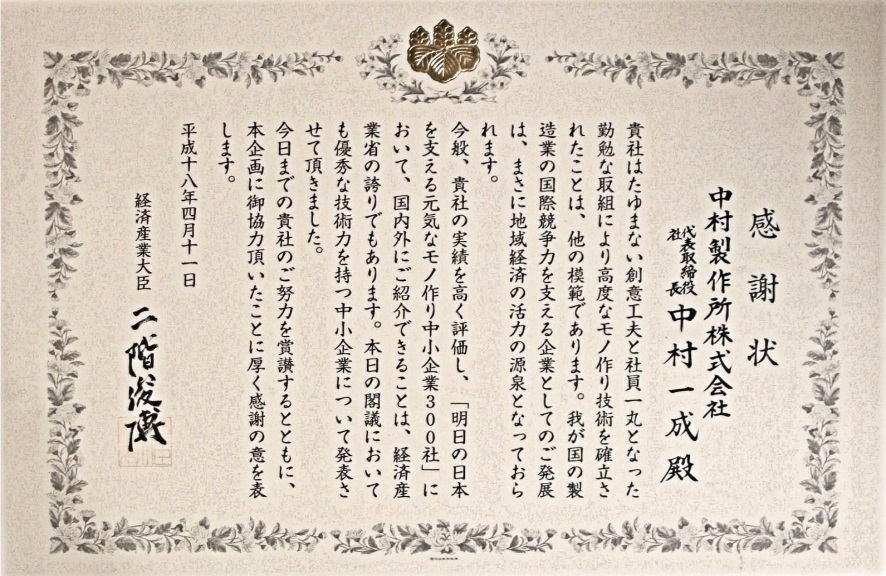 感謝状
中村製作所株式会社
代表取締役
社長
中村一成殿
貴社はたゆまない創意工夫と社員一丸となった
勤勉な取組により高度なモノ作り技術を確立さ
れたことは、他の模範であります。我が国の製
造業の国際競争力を支える企業としてのご発展
は、まさに地域経済の活力の源泉となっておら
れます。
今般、貴社の実績を高く評価し、「明日の日本
を支える元気なモノ作り中小企業300社」に
おいて、国内外にご紹介できることは、経済産
業省の誇りでもあります。本日の閣議において
も優秀な技術力を持つ中小企業について発表さ
せて頂きました。
今日までの貴社のご努力を賞讃するとともに、
本企画に御協力頂いたことに厚く感謝の意を表
します。
平成十八年四月十一日
経済産業大臣
二階俊博